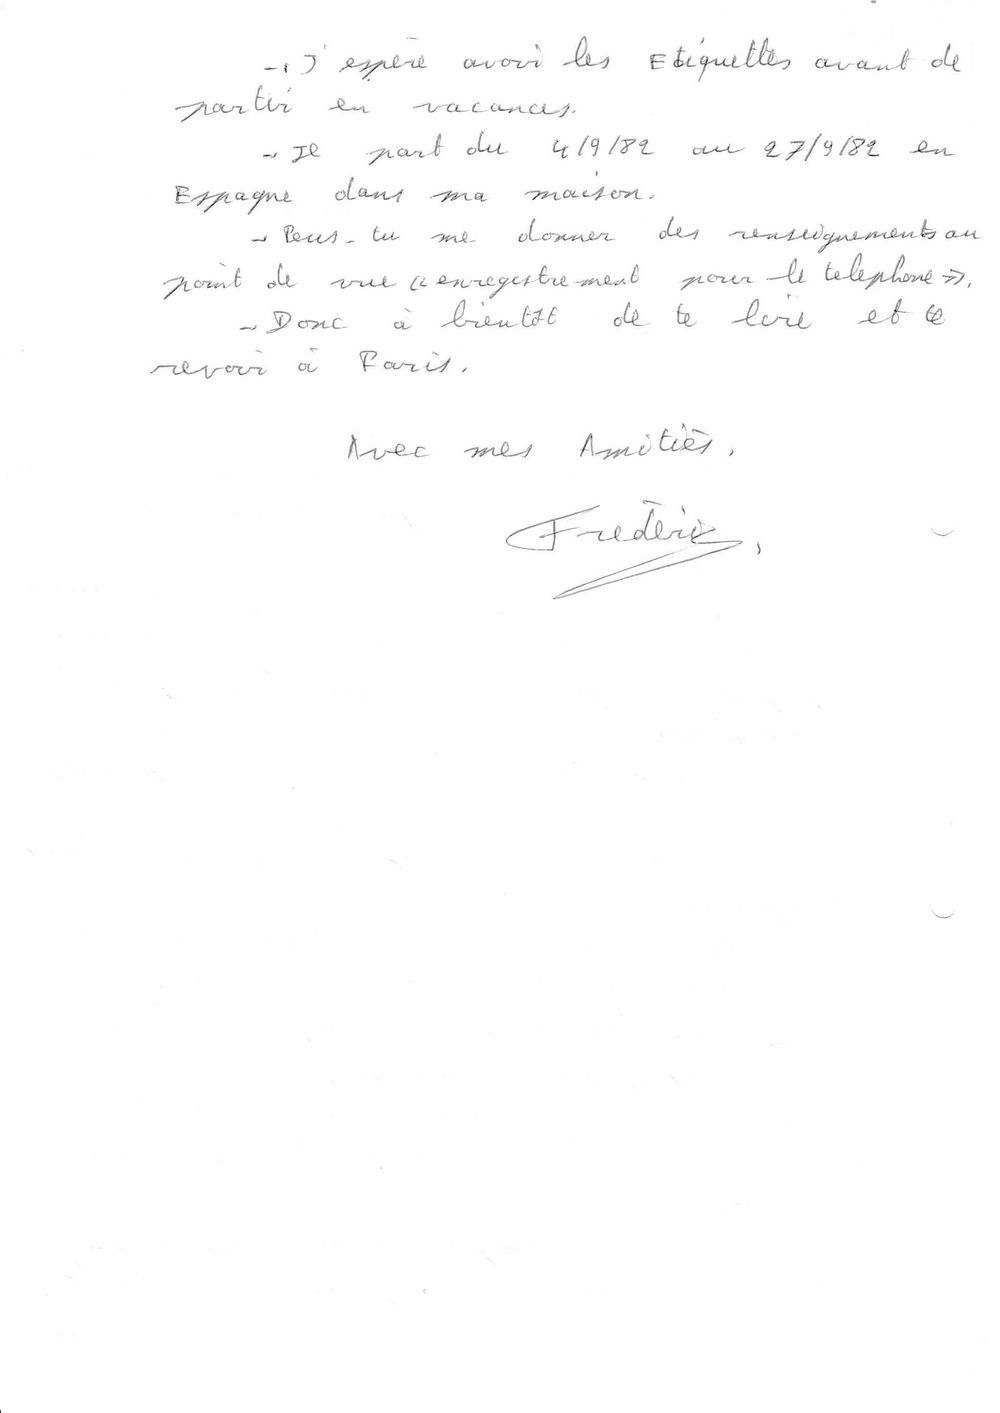 - J'espère avoir les Etiquettes avant de
partir en vacances.
- Je part du 4/9/82 au 27/9/82 en
Espagne dans ma maison.
- Peus-tu me donner des renseignements au
point de vue « enregistrement pour le telephone ».
- Donc à bientôt de te lire et te
revoir à Paris.
Avec mes Amitiés.
Frédéric,